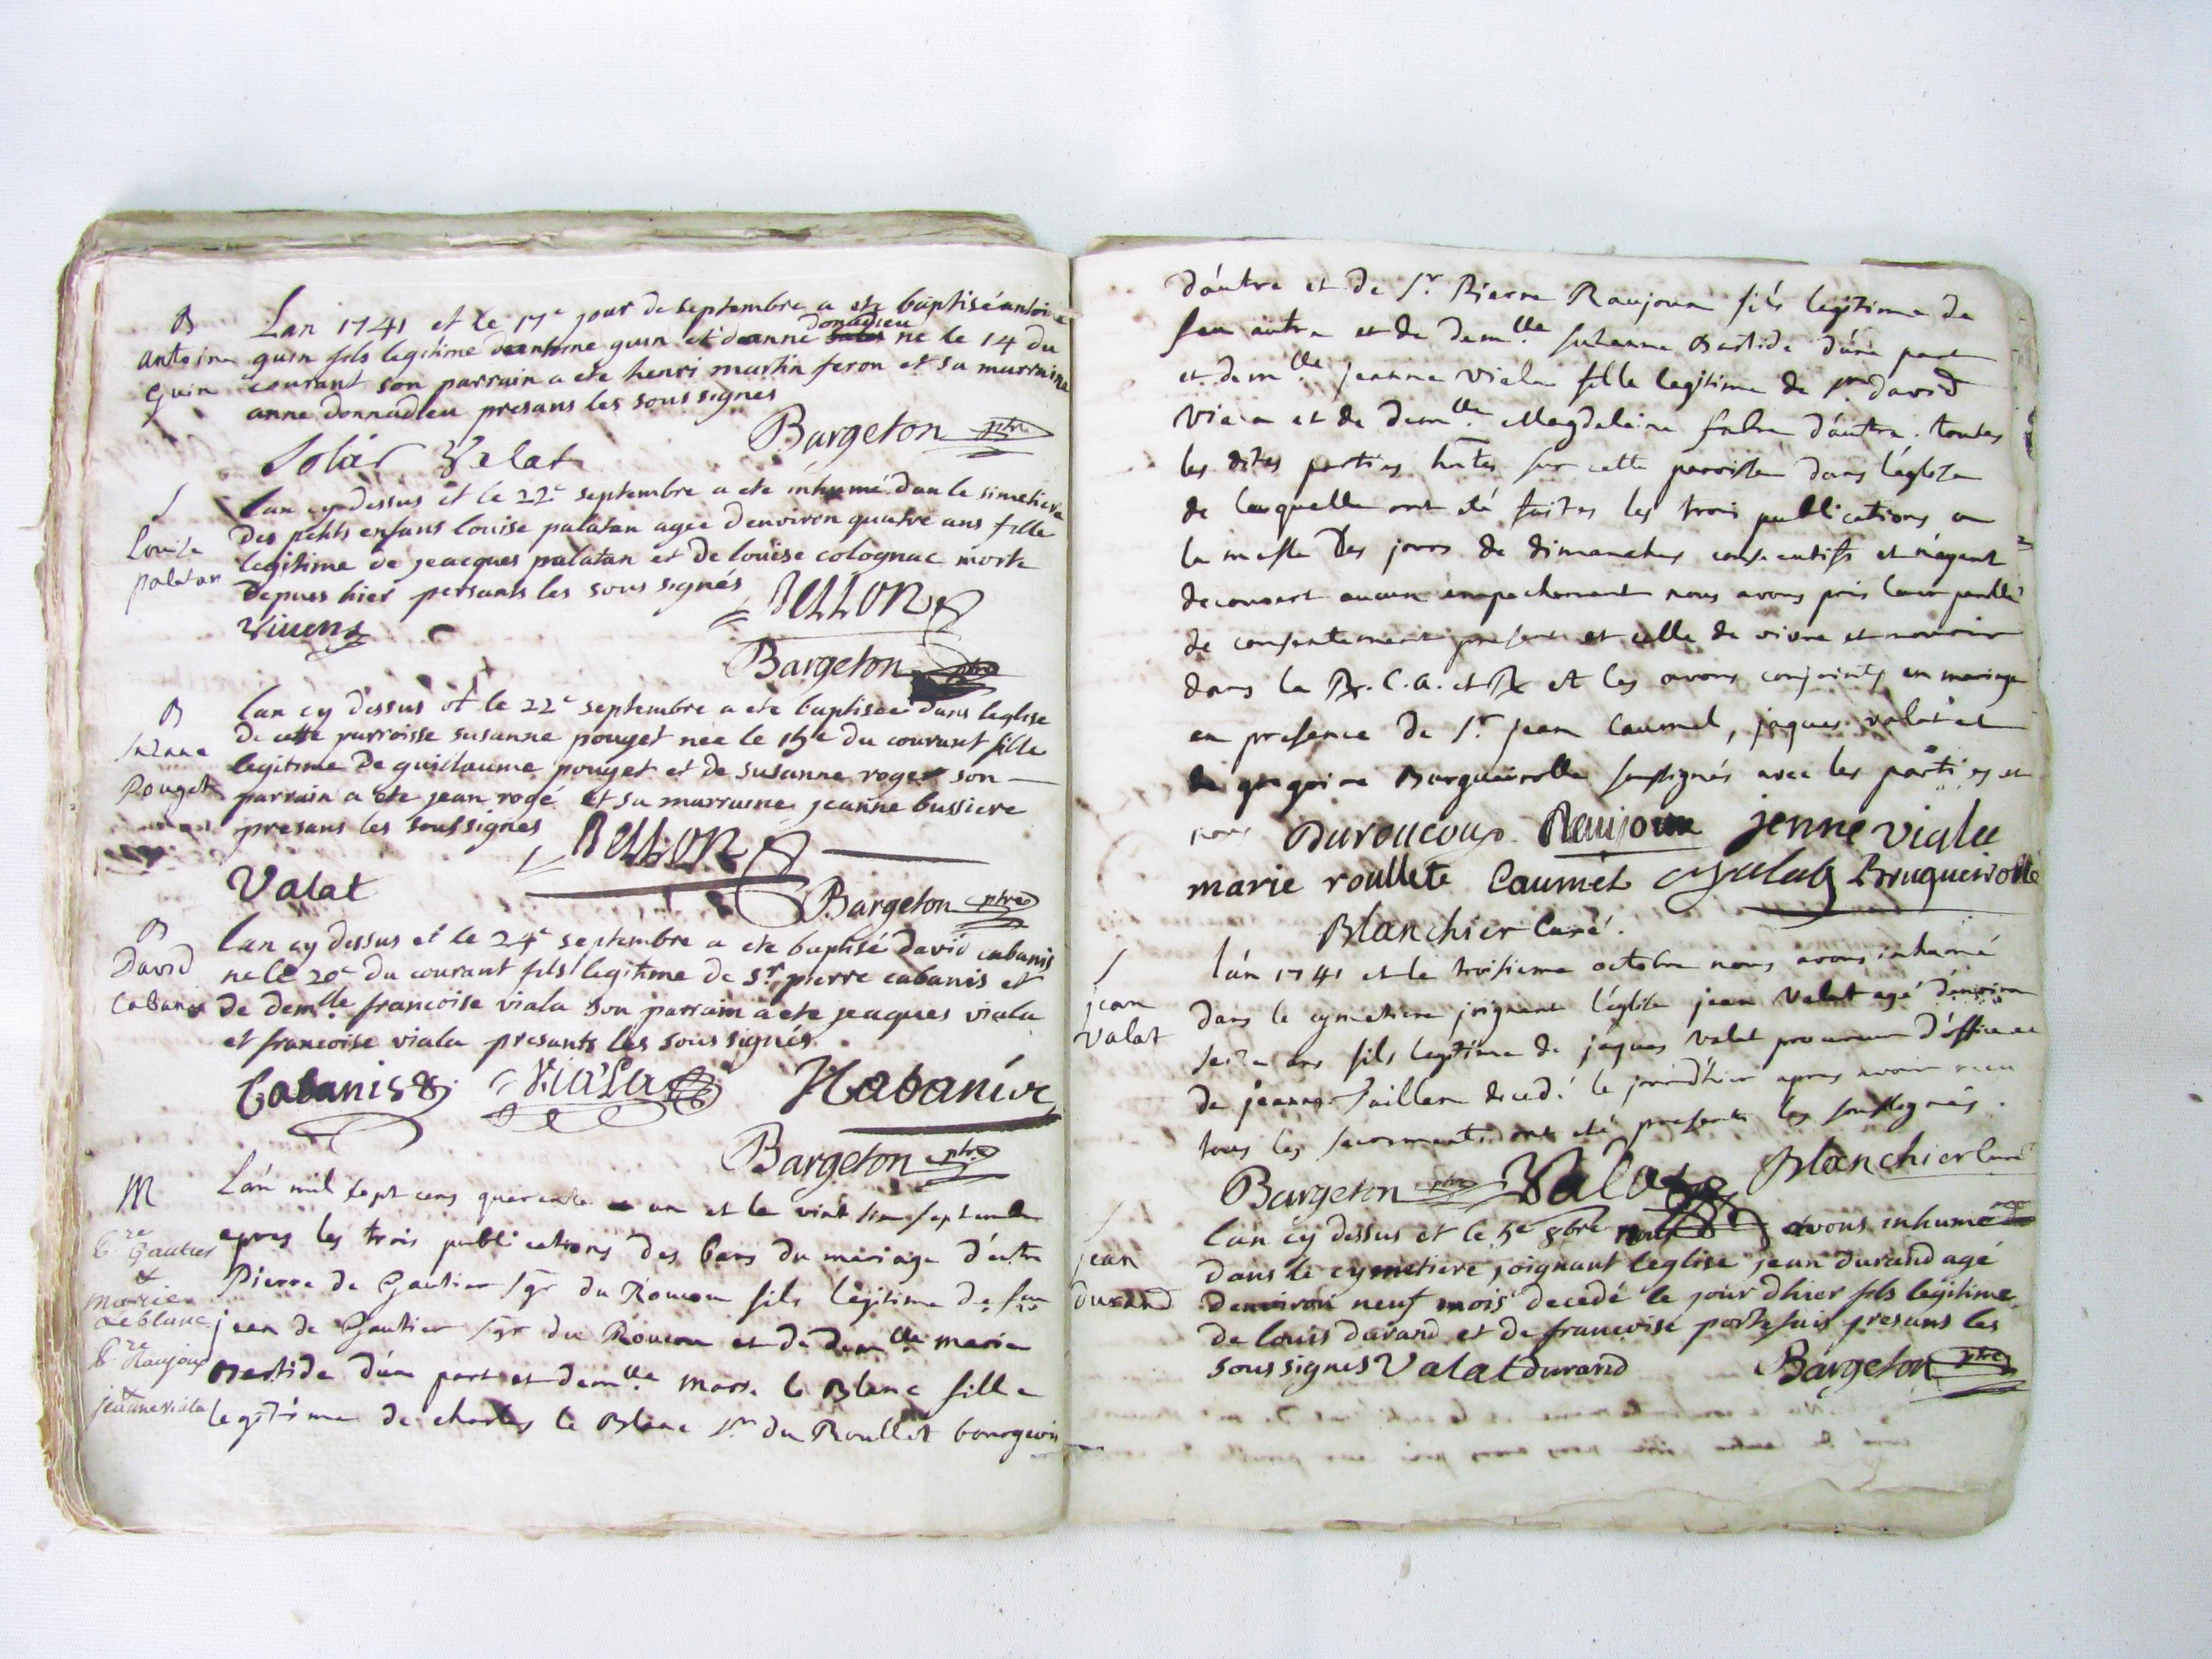 B
antoine
guin
Lan 1741 et le 17e jour de septembre a ete baptisé antoine
guin fils legitime deantoine guin et deanne donadieu ne le 14 du
courant son parrain a ete henri martin feron et sa marraine
anne donnadieu presans les sous signes
Bargeton ptre
Solár Valat
S
Louise
palatan
lan cy dessus et le 22e septembre a ete inhumé dan le simetiere
des petits enfans louise palatan agee denviron quatre ans fille
legitime de jeacques palatan et de louise colognac morte
depues hier persants les sous signés BELLON
Vivens
Bargeton ptre
B
Suzane
Pouget
lan cy dessus et le 22e septembre a ete baptisee dans leglise
de cette parroisse susanne pouget nee le 15e du courant fille
legitime de guillaume pouget et de susanne roger son
parrain a ete jean rogé et sa marraine jeanne bussiere
presans les soussignes BELLON
Valat
Bargeton ptre
B
David
Cabanis
lan cy dessus et le 24e septembre a ete baptisé david cabanis
ne le 20e du courant fils legitime de Sr pierre cabanis et
de demlle francoise viala son parrain a ete jeaques viala
et francoise viala presants les sous signés
Cabanis Viala
Bargeton ptre
M
Pre Gautier
&
marie
Leblanc
Pre Raujoux
&
jeanne viala
L'an mil sept cens quarente un et le vint septembre
apres les trois publications des bans du mariage d'entre
Pierre de Gautier sgr du Roucou fils légitime de feu
jean de Gautier sgr du Roucou et de demlle marie
Bastide d'une part et demlle marie le Blanc fille
legitime de charles le Blanc sr du Roullet bourgeois
d'autre et de Sr Pierre Raujoux fils legitime de
feu autre et de demlle suzanne Bastide d'une part
et demlle jeanne viala fille legitime de Sr david
viala et de demlle Magdeleine fabre d'autre. toutes
les dites parties htes sur cette parroisse dans l'église
de laquelle ont eté faites les trois publications a
la messe des jours de dimanches consecutifs et n'ayant
decouvert aucun empachement nous avons pris leur parolle
de consentement present et celle de vivre et mourir
dans la R. C. a. et R et les avons conjoints en mariage
en presence de Sr jean Caumel, jaques valat et
gregoire Bruguierolle soussignés avec les parties et
nous Duroucoux Raujoux jenne viala
marie roullete Caumel Valat Brugueirolle
Blanchier Curé.
S
jean
valat
l'an 1741 et le troisieme octobre nous avons inhumé
dans le cymetiere joignant l'église jean valat agé d'environ
seize ans fils legitime de jaques valat procureur d'office et
de jeanne decedé le jour d'hier apres avoir recu
tous les sacrements ont eté presents les soussignés.
Bargeton ptre Valat Blanchier Curé
S
jean
durand
lan cy dessus et le 5e 8bre avons inhumé
dans le cymetiere joignant leglise jean durand agé
denviron neuf mois decedé le jour dhier fils legitime
de louis durand et de francoise portefais presans les
soussignes Valat durand Bargeton ptre